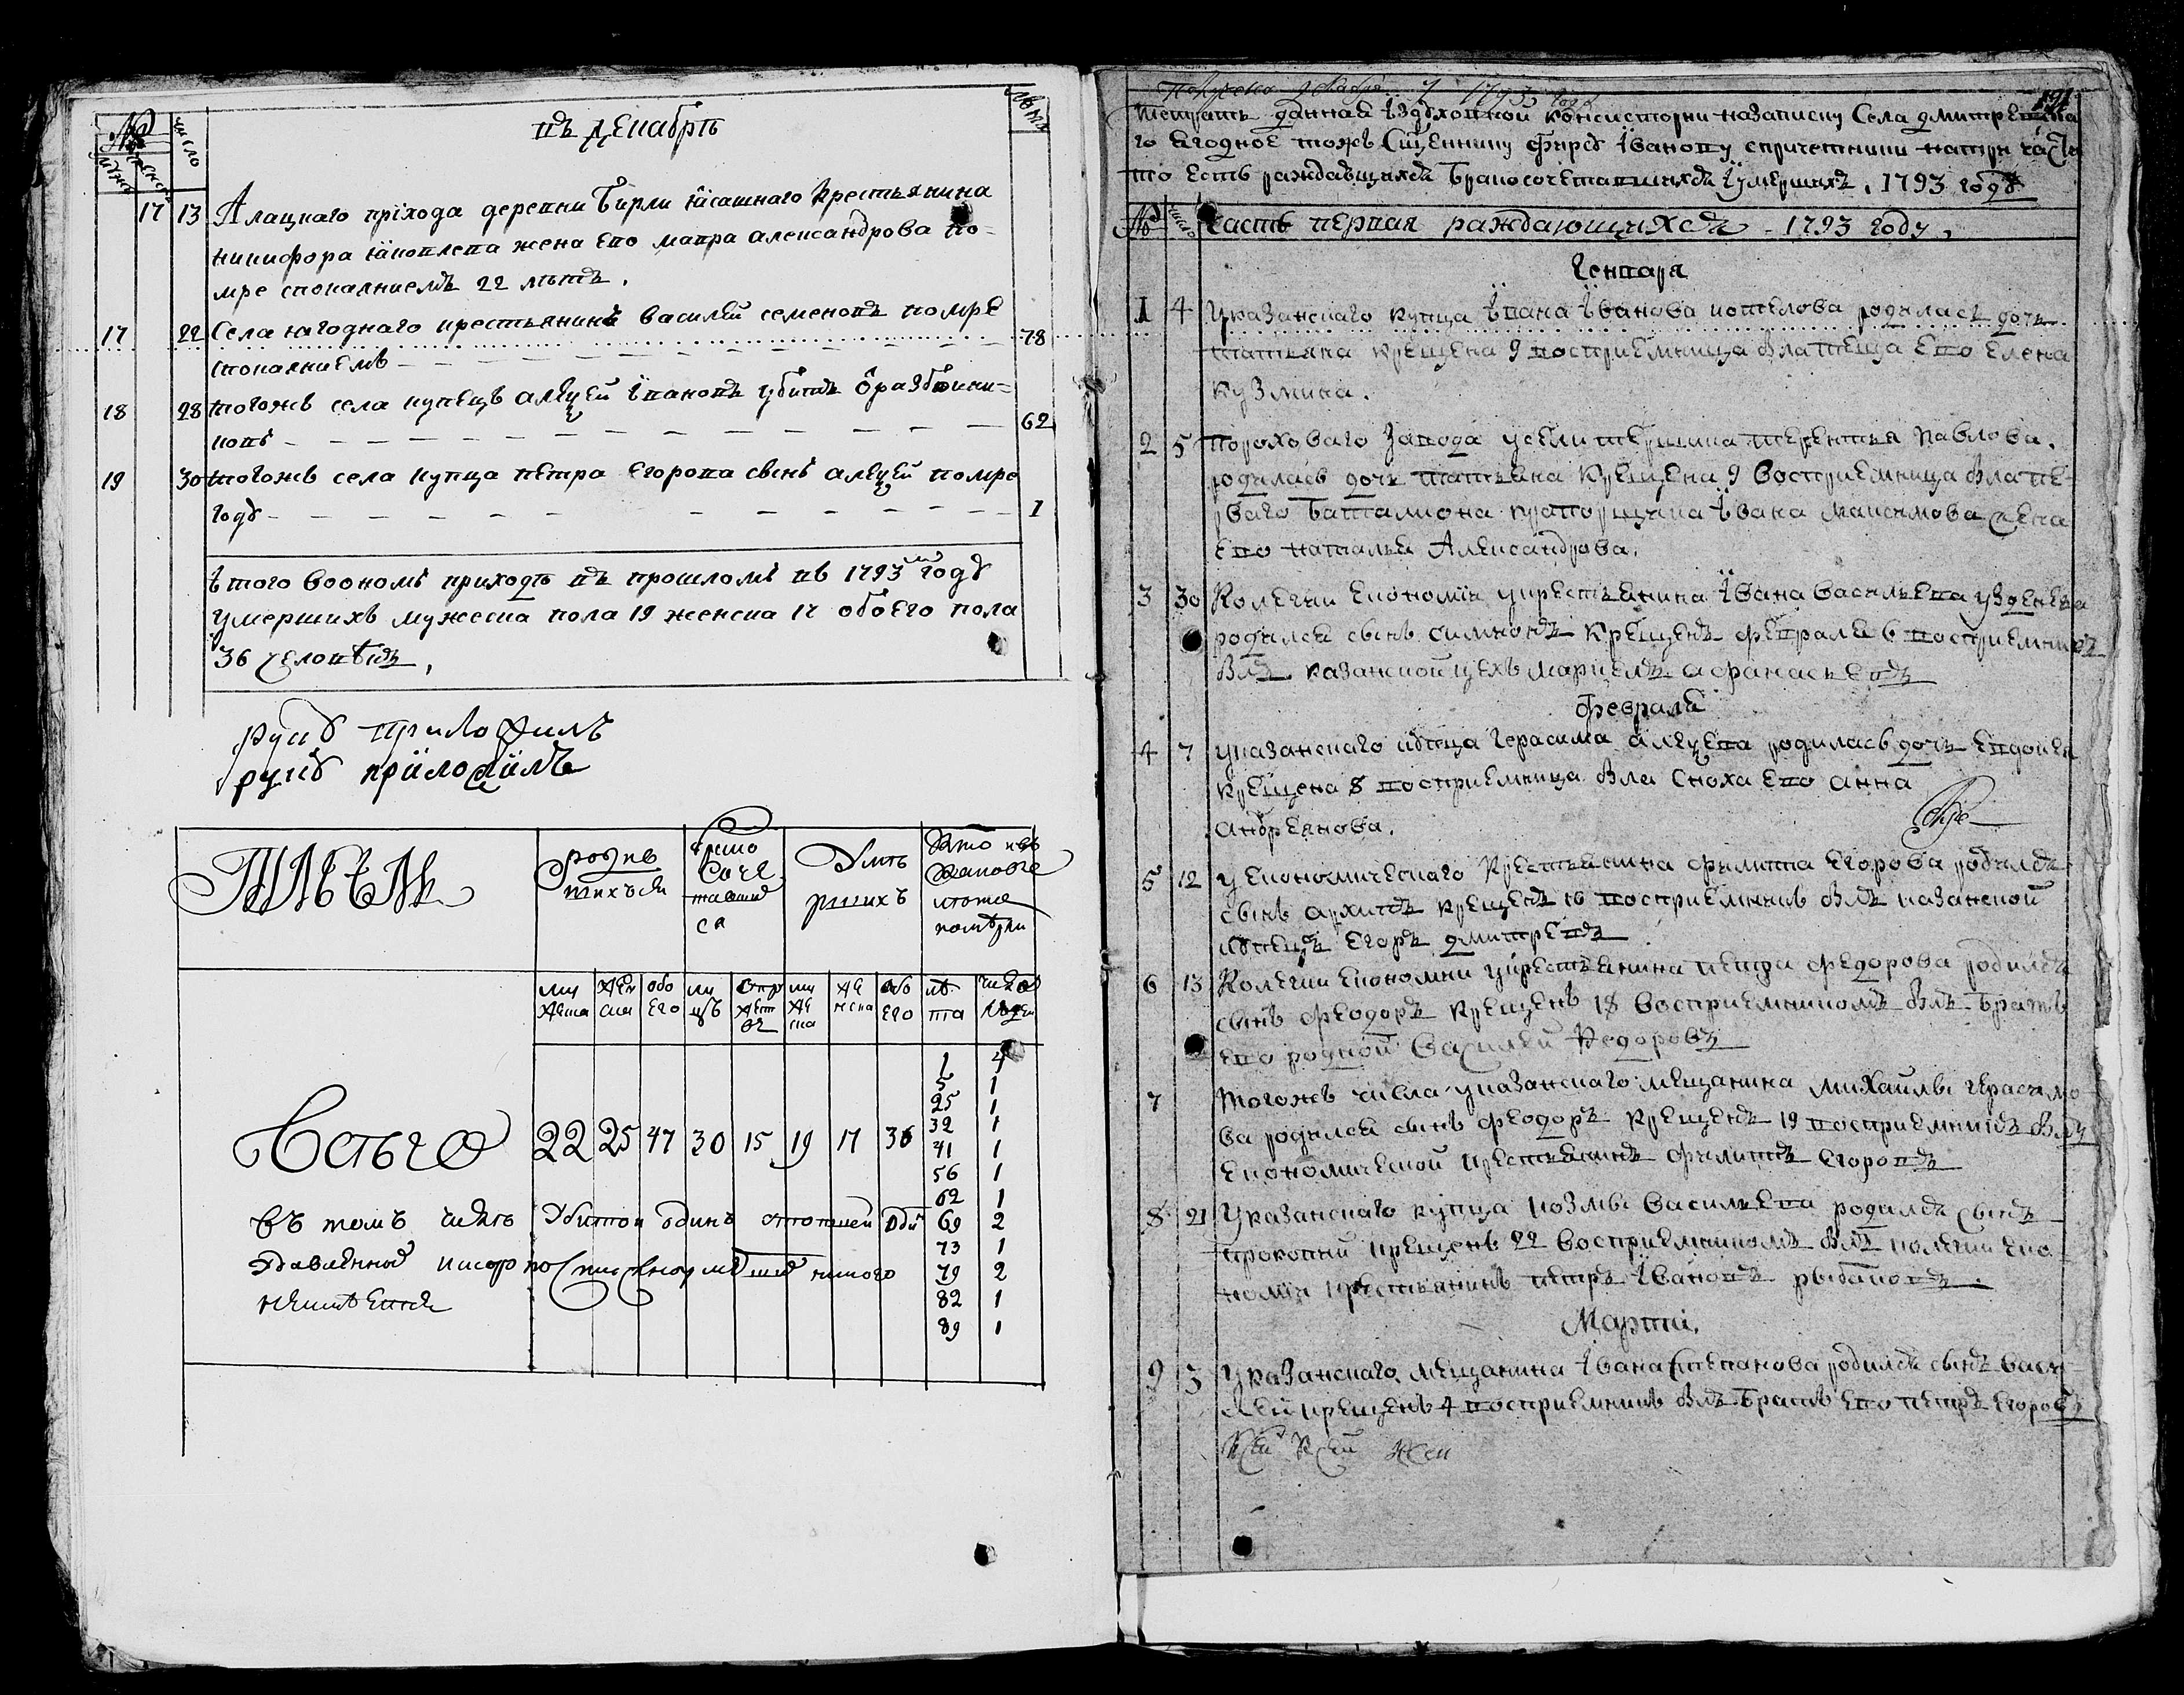 №
число
лѣта
въ декабрѣ
17 13 Алацкаго прїхода деревни Бирли ясашнаго крестьянина
никифора яковлева жена ево мавра александрова по-
мре спокаяниемъ 22 лѣтъ.
17 22 Села ягоднаго крестьянинъ василей семеновъ помре
спокаяниемъ 78
18 28 тогожъ села купецъ алеѯей ївановъ убитъ ѿ разбоини-
ковъ 62
19 30 тогожъ села купца петра егорова сынъ алеѯей помре
году 1
їтого вооном приходѣ въ прошломъ въ 1793м году
умершихъ мужеска пола 19 женска 17 обоего пола
36 человѣкъ,
руку приложилъ
руку прїложїлъ
родив шихъся
брако соче тавши ся
умер ших
му жеска жен ска обо его му жъ супр жест въ му же ска же нска обо его лѣ та число людей
1 4
5 1
25 1
32 1
41 1
56 1
62 1
69 2
73 1
79 2
82 1
89 1
всего 22 25 47 30 15 19 17 36
въ томъ числѣ убитой одинъ
неимѣется
1793 года
191
тетрать данная їздуховной консисторииназаписку Села дмитревска
го ягодное тожъ Сщеннику ївановую спричетники натри части
то есть раждающихся бракосочетавшихся їумершихъ, 1793 году
№ число часть первая раждающихся 1793 году,
Генваря
1 4 Указанскаго купца Івана Іванова котелова родилась дочь
татьяна крещена 9 восприемница была теща ево елена
кузмина.
2 5 Пороховаго завода уселитершика терентья павлова.
родилась дочь татьяна крещена 9 восприемница была пе-
рваго баталиона прапорщика Івана максимова жена
ево наталья Александрова.
3 30 Колегии економїи укрестьянина Івана васильева
родился сынъ симионъ крещенъ февраля 6 восприемникъ
былъ казанской цехъ афанасьевъ
февраля
4 7 указанскаго купца герасима алеѯева родилась дочь евдокея
крещена 8 восприемница была сноха ево анна
андреянова.
5 12 у економическаго крестьянина филиппа егорова родился
сынъ архипъ крещенъ 16 восприемникъ былъ казанской
купецъ егоръ дмитревъ
6 13 Колегии економии укрестьянина петра федорова родился
сынъ феодоръ крещенъ 18 восприемникомъ былъ братъ
ево родной василей федоровъ
7 тогожъ числа указанскаго мещанина михаилы герасимо
ва родился сынъ феодоръ крещенъ 19 восприемникъ былъ
економической крестьянинъ филиппъ егоровъ
8 21 Указанскаго купца козмы васильева родился сынъ
прокопий крещенъ 22 восприемникомъ былъ колегии еко
номїи крестьянинъ петръ Івановъ рыбаковъ.
Марта,
9 3 Указанскаго мещанина Івана степанова родился сынъ васи
лей крещенъ 4 восприемникъ былъ братъ ево петръ егоровъ